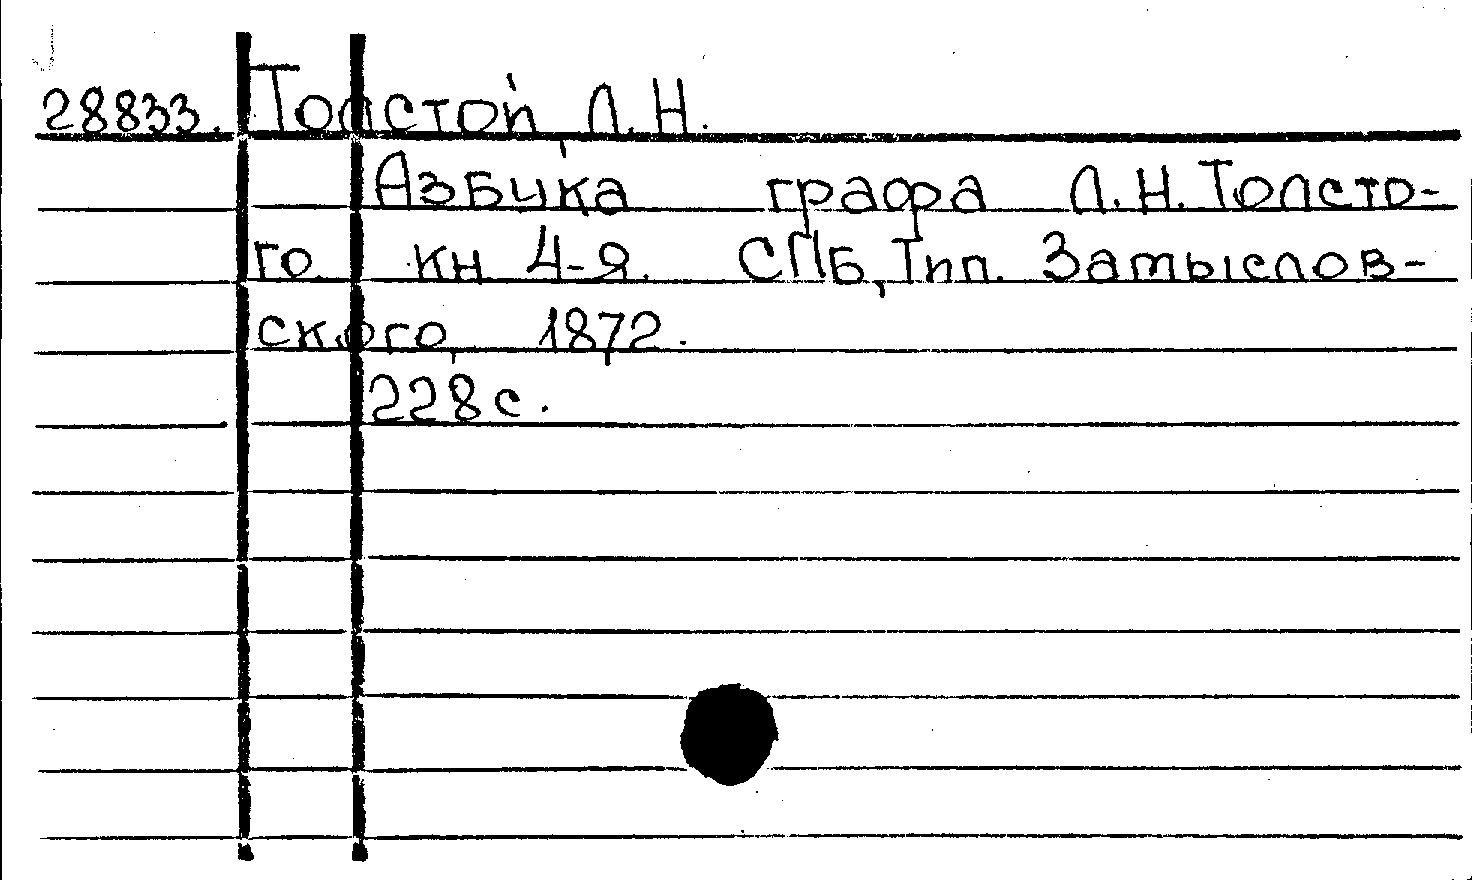 28833. Толстой, Л.Н.
Азбука графа Л.Н.Толсто-
го кн 4-я. СПБ, Тип. Затыслов-
ского, 1872.
228 с.